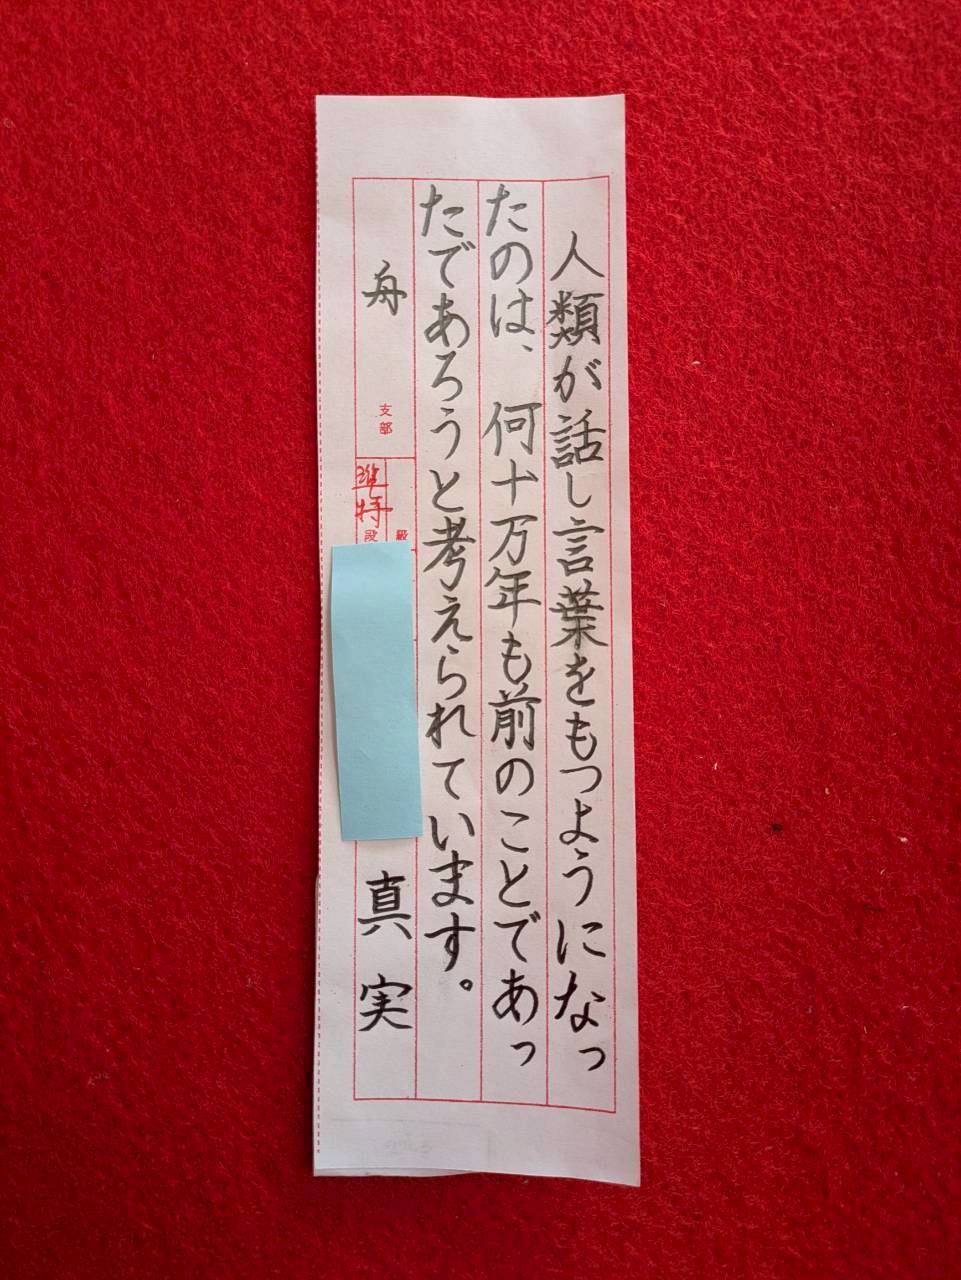 人類が話し言葉をもつようになっ
たのは、何十万年も前のことであっ
たであろうと考えられています。
舟 支部
級
準特 段
真実